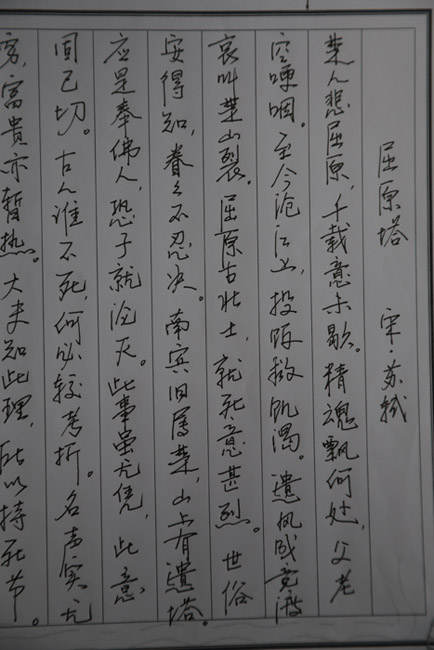 屈原塔 宋·苏轼
楚人悲屈原,千载意未歇。精魂飘何处,父老
空哽咽。至今沧江上,投饭救饥渴。遗风成竞渡
哀叫楚山裂。屈原古壮士,就死意甚烈。世俗
安得知,眷々不忍决。南宾旧属楚,山上有遗塔。
应是奉佛人,恐子就沦灭。此事虽无凭,此意
固已切。古人谁不死,何必较考折。名声实无
穷,富贵亦暂热。大夫知此理,所以持死节。